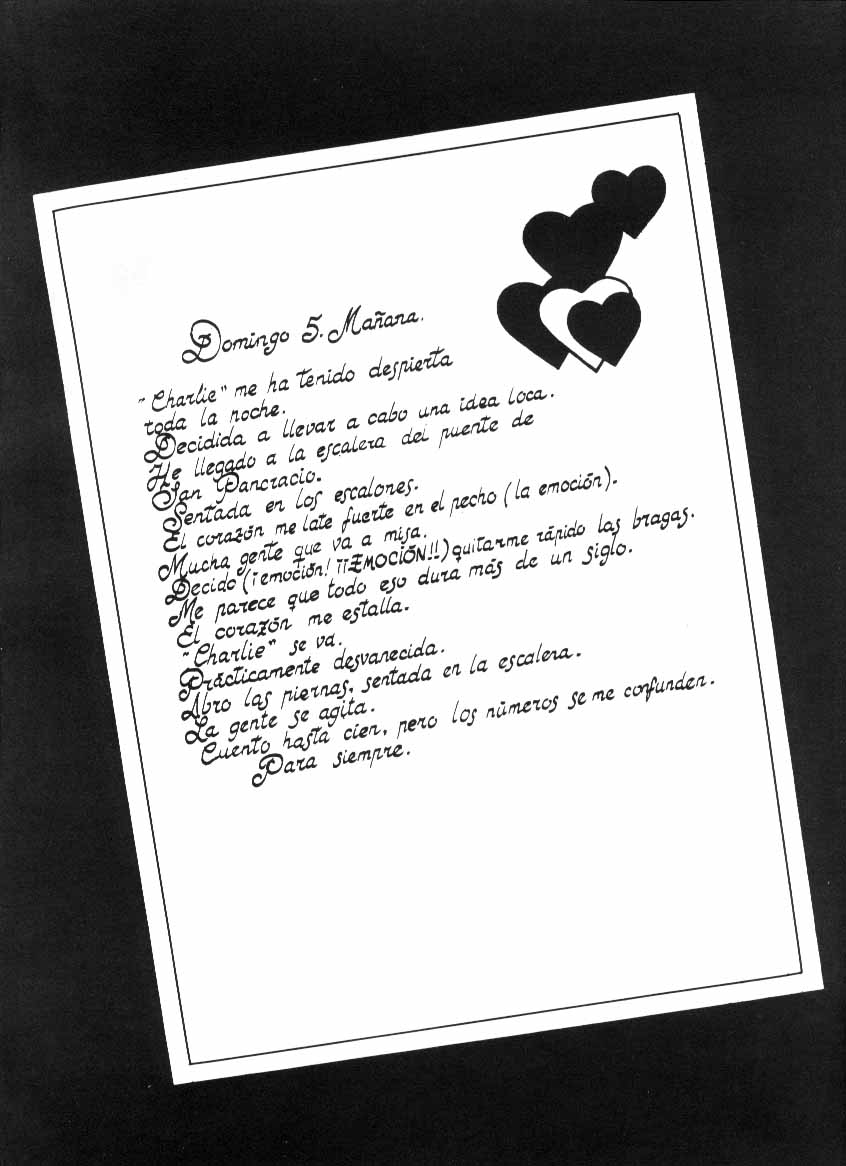 Domingo 5. Mañana.
"Charlie" me ha tenido despierta
toda la noche.
Decidida a llevar a cabo una idea loca.
He llegado a la escalera del puente de
San Pancracio.
Sentada en los escalones.
El corazón me late fuerte en el pecho (la emoción).
Mucha gente que va a misa.
Decido (¡emoción! ¡¡EMOCIÓN!!) quitarme rápido las bragas.
Me parece que todo eso dura más de un siglo.
El corazón me estalla.
"Charlie" se va.
Prácticamente desvanecida.
Abro las piernas, sentada en la escalera.
La gente se agita.
Cuento hasta cien, pero los números se me confunden.
Para siempre.